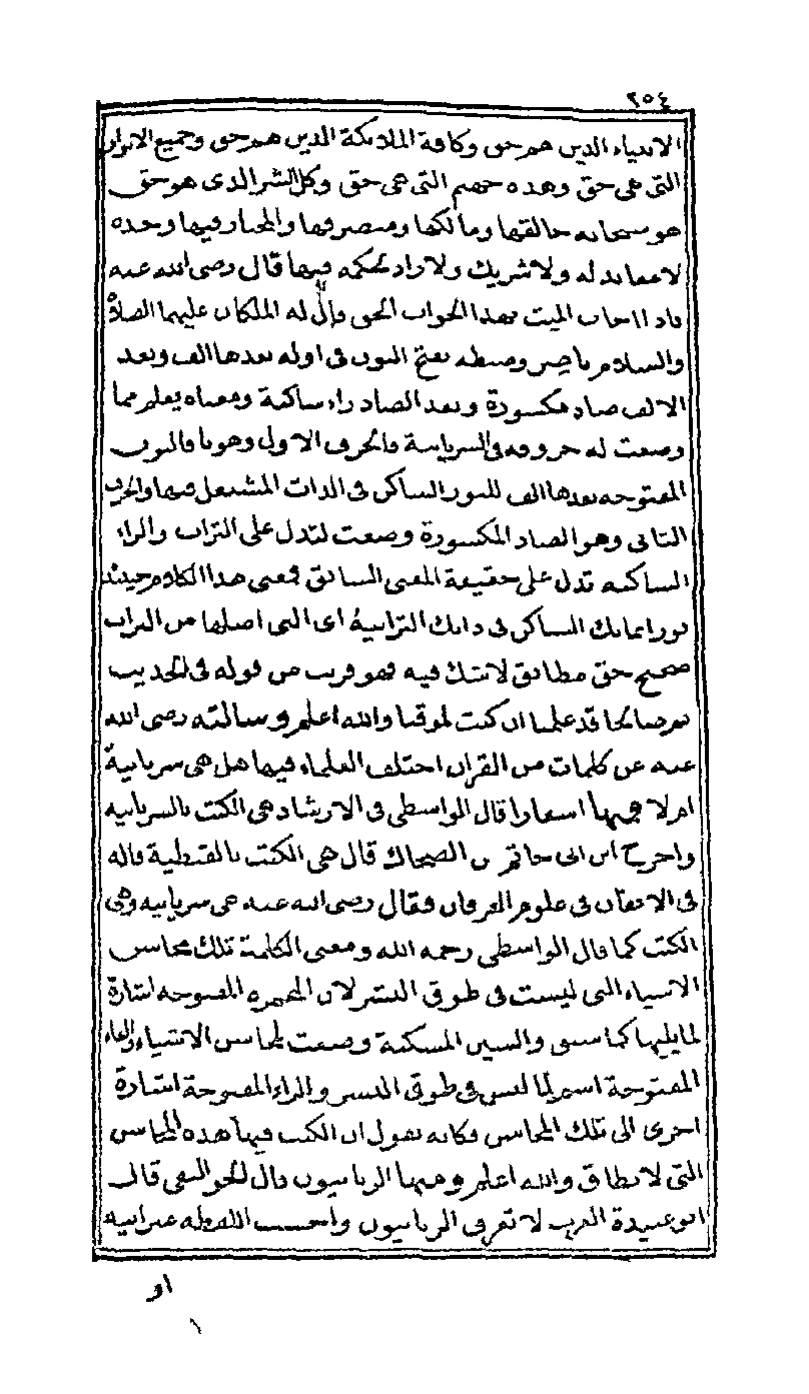 ٢٥٤
الانبياء الذين هم حق وكافة الملائكة الذين هم حق وجميع الانوار
التي هي حق وهذه جهنم التي هي حق وكل الشر الذي هو حق
هو سبحانه خالقها ومالكها ومتصرفها والمختار فيها وحده
لا معاند له ولا شريك ولا راد لحكمه فيها قال رضي الله عنه
فاذا اجاب الميت بهذا الجواب الحق قال له الملكان عليهما الصلاة
والسلام ناصِر وضبطه بفتح النون في اوله بعدها الف وبعد
الالف صاد مكسورة وبعد الصاد راء ساكنة ومعناه يعلم مما
وضعت له حروفه في السريانية فالحرف الاول وهو نا فالنون
المفتوحة بعدها الف للنور الساكن في الذات المشتعل فيها والحرف
الثاني وهو الصاد المكسورة وضعت لتدل على التراب والراء
الساكنة تدل على حقيقة المعنى السابق فمعنى هذا الكلام حينئذ
نور ايمانك الساكن في ذاتك الترابية اى التي اصلها من التراب
صحيح حق مطابق لا شك فيه فهو قريب من قوله في الحديث
نم صالحا قد علمنا ان كنت لموقنا والله اعلم وسالته رضي الله
عنه عن كلمات من القران اختلف العلماء فيها هل هي سريانية
ام لا فمنها اسفارا قال الواسطي في الارشاد هي الكتب بالسريانية
واخرج ابن ابي حاتم عن الضحاك قال هي الكتب بالقبطية قاله
في الاتقان في علوم القرءان فقال رضي الله عنه هي سريانية وهي
الكتب كما قال الواسطي رحمه الله ومعنى الكلمة تلك محاسن
الاشياء التي ليست في طوق البشر لان الهمزة المفتوحة اشارة
لما يليها كما سبق والسين المسكنة وضعت لمحاسن الاشياء والفاء
المفتوحة اسم لما ليس في طوق البشر والراء المفتوحة اشارة
اخرى الى تلك المحاسن فكانه يقول ان الكتب فيها هذه المحاسن
التي لا تطاق والله اعلم ومنها الربانيون قال الجواليقي قال
ابو عبيدة العرب لا تعرف الربانيون واحسب اللفظة عبرانية
او
١